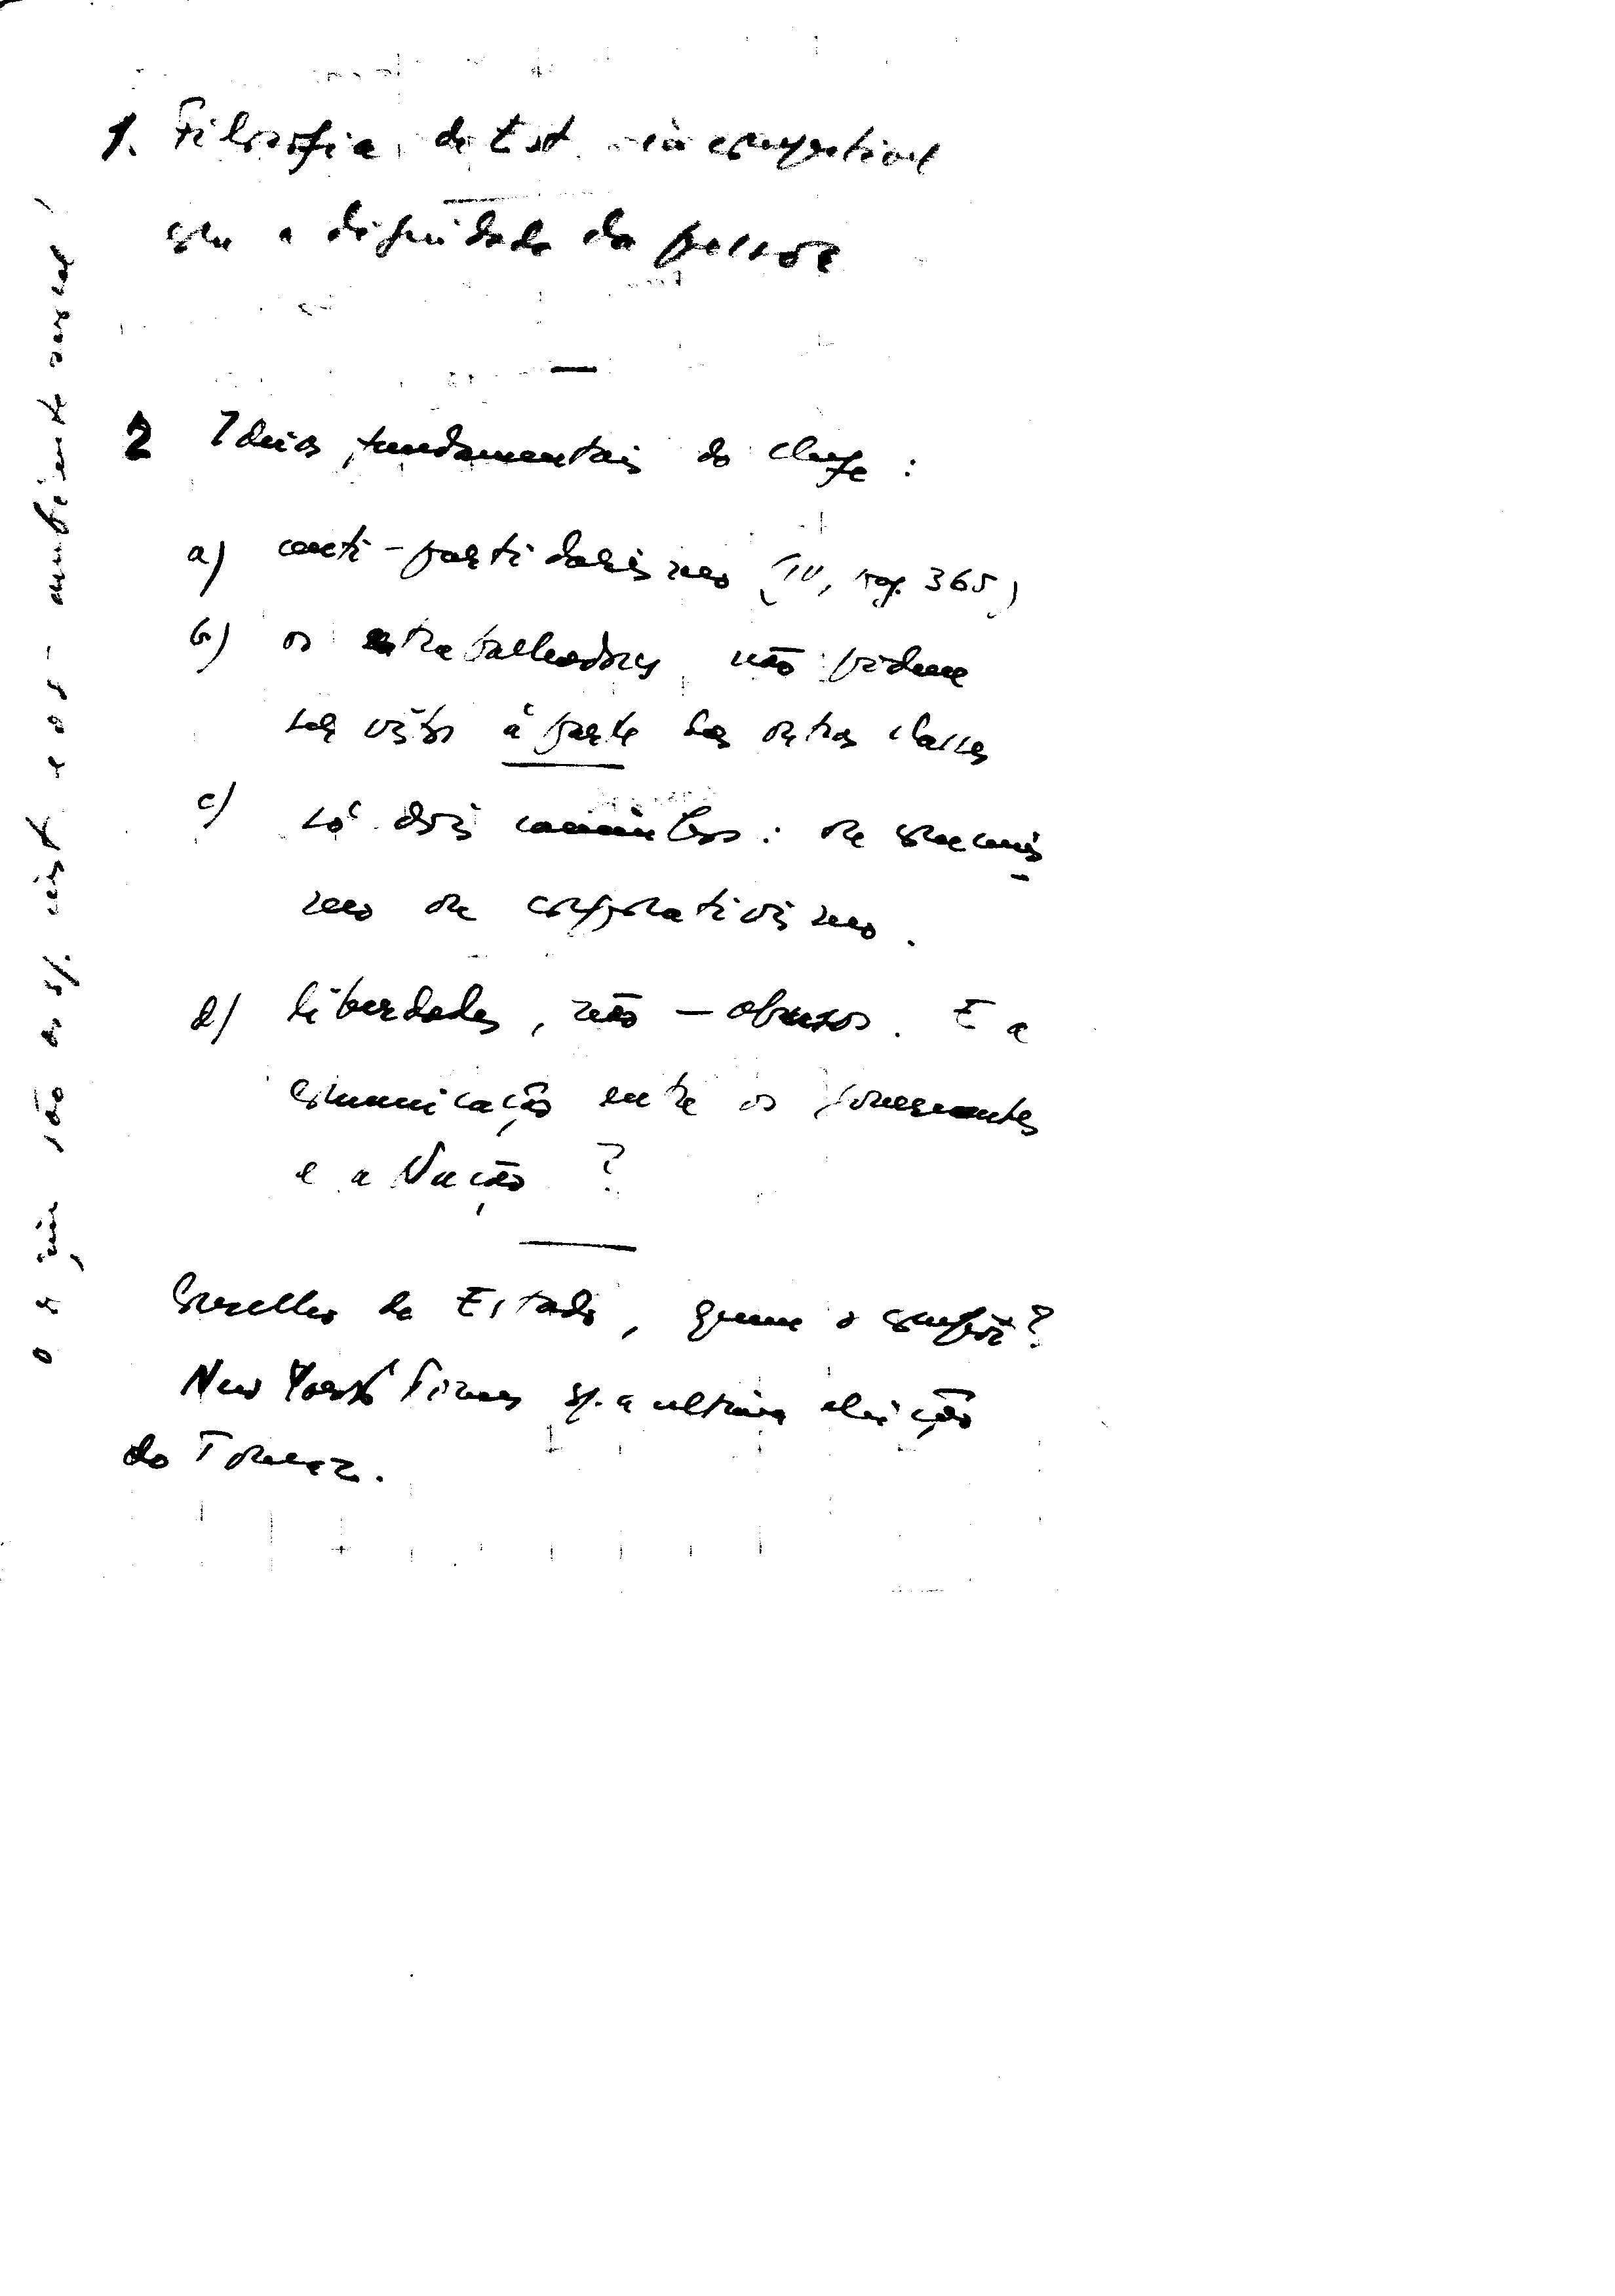 1. Filosofia do Est. incompatível
com a dignidade da pessoa
2 Ideias fundamentais do chefe :
a) anti-partidarismo (IV, pag. 365)
b) os trabalhadores não podem
ser vistos à parte das outras classes
c) só dois caminhos : ou comunis
mo ou corporativismo.
d) liberdades, não - abusos. E a
comunicação entre os governantes
e a Nação ?
Conselho de Estado, quem o compõe?
New York Times s/. a ultima eleição
do Tomaz.